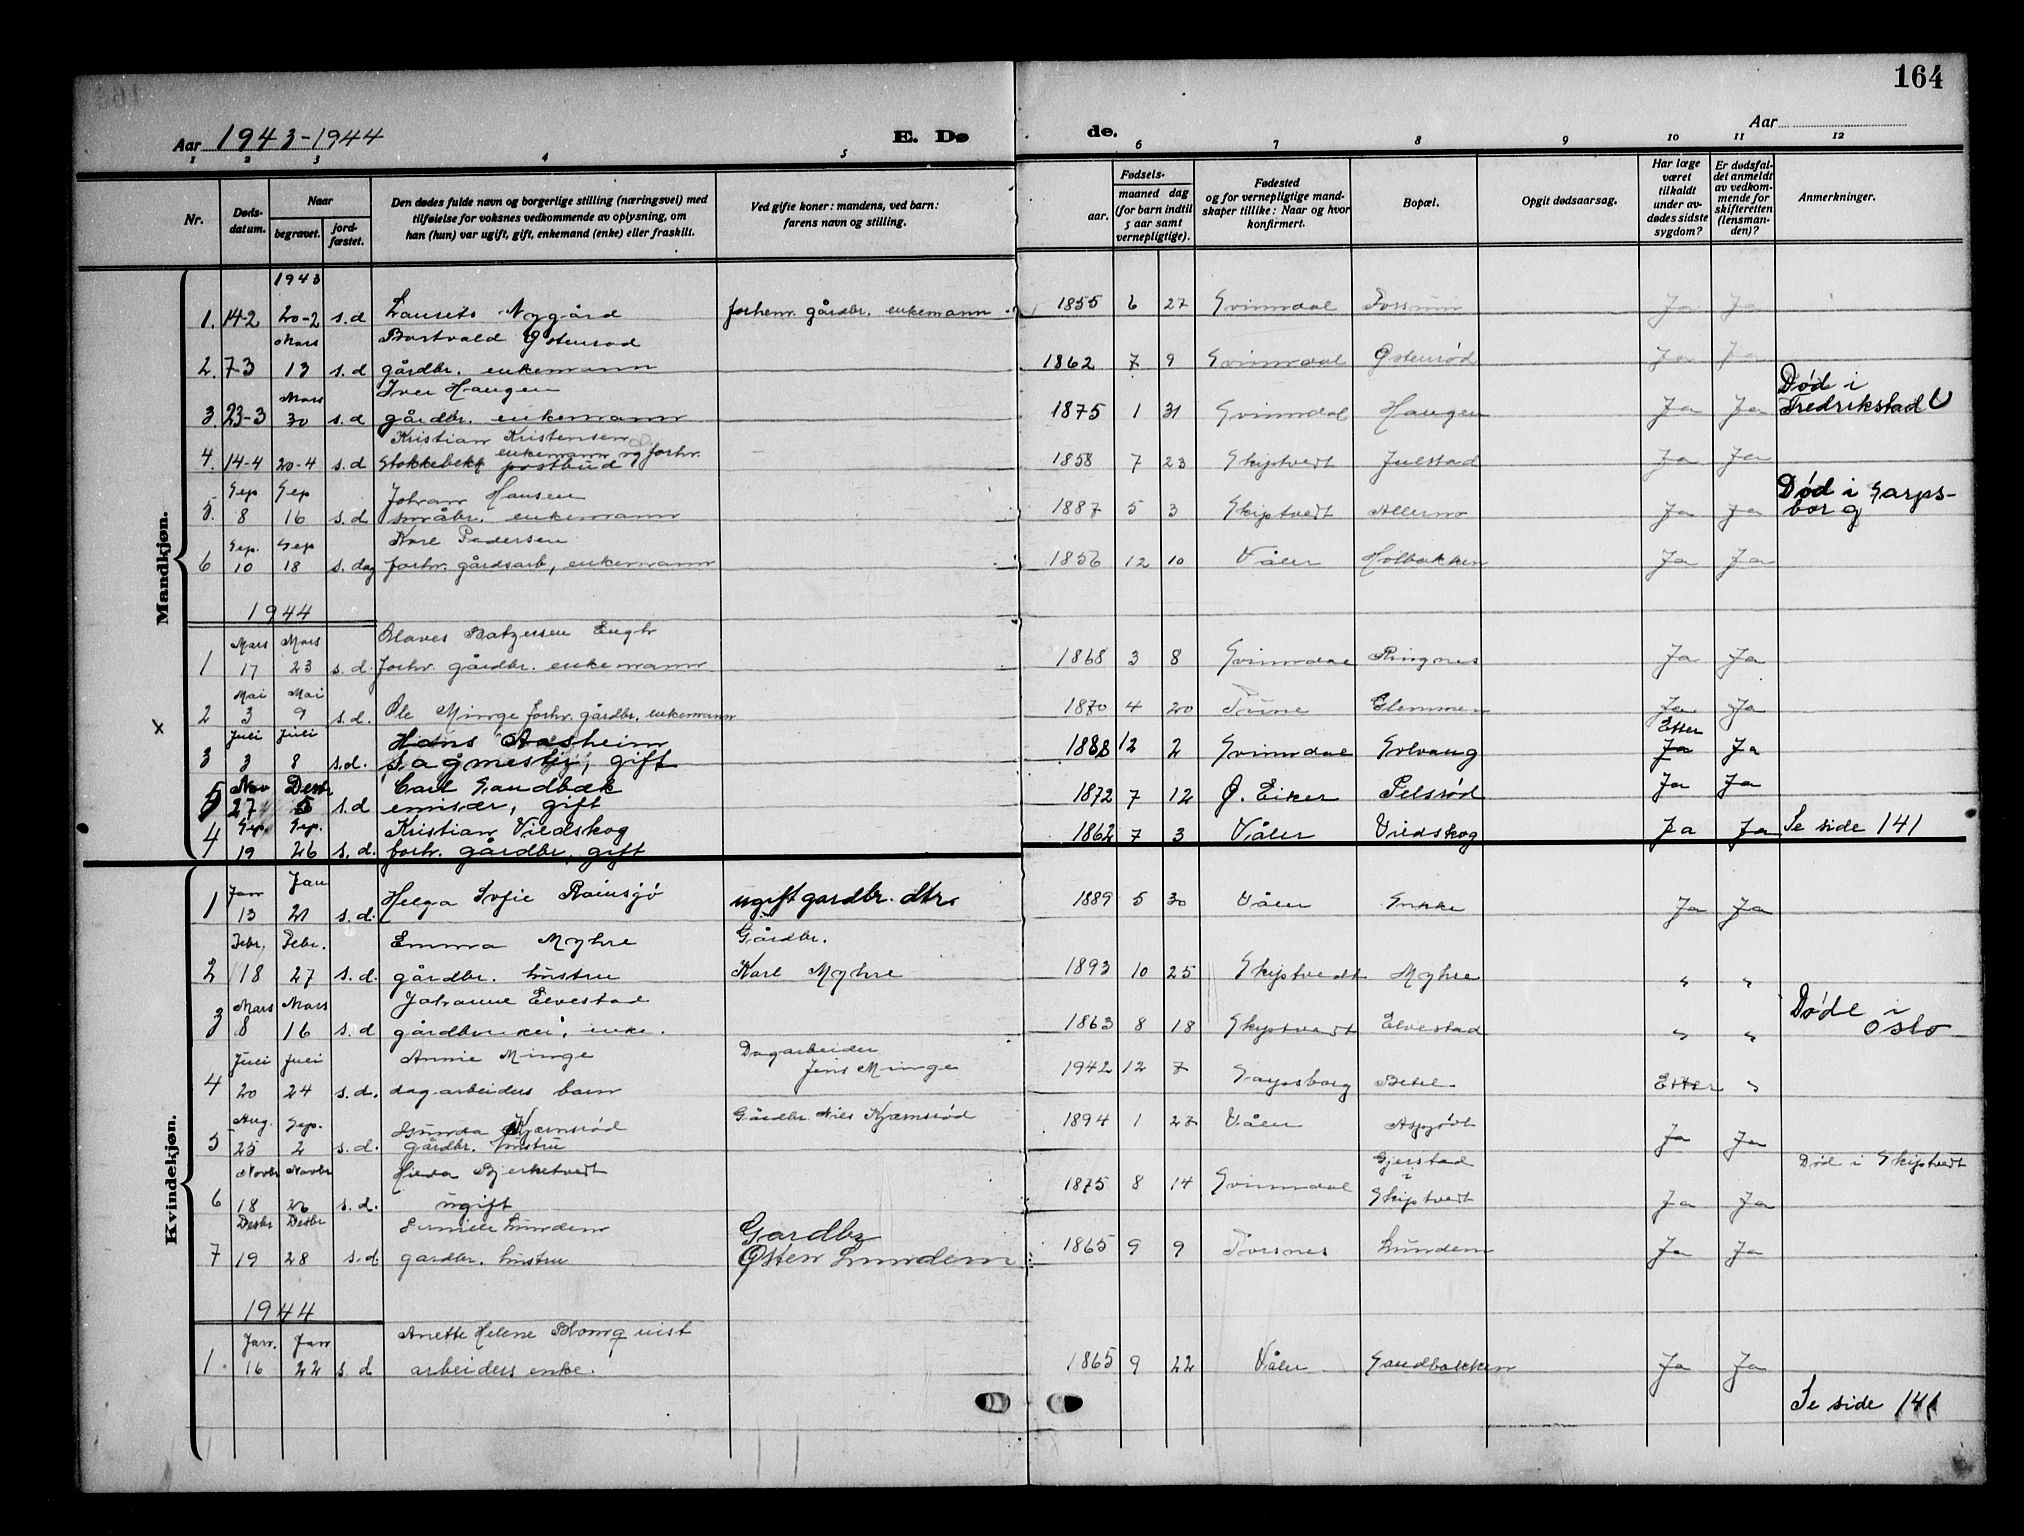 164
Aar 1943-1944
E. Dø
de.
Aar
1 2 3 4 5 6 7 8 9 10 11 12
Nr.
Døds-
datum.
Naar
begravet.
jord-
fæstet.
Den dødes fulde navn og borgerlige stilling (næringsvei) med
tilføielse for voksnes vedkommende av oplysning, om
han (hun) var ugift, gift, enkemand (enke) eller fraskilt.
Ved gifte koner: mandens, ved barn:
farens navn og stilling.
Fødsels-
aar.
maaned dag
(for barn indtil
5 aar samt
vernepligtige).
Fødested
og for vernepligtige mand-
skaper tillike: Naar og hvor
konfirmert.
Bopæl.
Opgit dødsaarsag.
Har læge
været
tilkaldt
under av-
dødes sidste
sygdom?
Er dødsfal-
det anmeldt
av vedkom-
mende for
skifteretten
(lensman-
den)?
Anmerkninger.
Mandkjøn.
1943
1. 14-2 20-2 s.d Laurits Nygård forhenv. gårdbr. enkemann 1855 6 27 Svinndal Fossum Ja Ja
Mars Bertvald Østenrød
2. 7-3 13 s.d gårdbr. enkemann 1862 7 9 Svinndal Østenrød Ja Ja
Mars Iver Haugen Død i
3. 23-3 30 s.d gårdbr. enkemann 1875 1 31 Svinndal Haugen Ja Ja Fredrikstad
Kristian Kristensen
enkemann og forhv.
4. 14-4 20-4 s.d Stokkebekk postbud 1858 7 23 Skiptvedt Julstad Ja Ja
Sep Sep Johan Hansen Død i Sarps-
5. 8 16 s.d småbr. enkemann 1887 5 3 Skiptvedt Ja Ja borg
Sep. Sep Karl Pedersen
6 10 18 s.dag forhv. gårdsarb, enkemann 1856 12 10 Våler Holbakken Ja Ja
1944
Mars Mars Olaves Engh
1 17 23 s.d. forhv. gårdbr. enkemann 1868 3 8 Svinndal Ringnes Ja Ja
Mai Mai
x 2 3 9 s.d. Ole Minge forhv. gårdbr. enkemann 1870 4 20 Tune Glemmen Ja Ja
Juli Juli Hans Aasheim Etter
3 3 8 s.d. sagmester, gift 1888 12 2 Svinndal Solvang Ja Ja
Nov Desbr Carl Sandbæk
5 27 5 s.d emisær, gift 1872 7 12 Ø. Eiker Pelsrød Ja Ja
Sep. Sep. Kristian Vildskog
4 19 26 s.d. forhv. gårdbr, gift 1862 7 3 Våler Vildskog Ja Ja Se side 141
Kvindekjøn.
Jan Jan
1 13 21 s.d. Helga Sofie Ramsjø ugift gardbr. dtr. 1889 5 30 Våler Ja Ja
Febr, Febr. Emma Myhre Gårdbr.
2 18 27 s.d. gårdbr. hustru Karl Myhre 1893 10 25 Skiptvedt Myhre " "
Mars Mars Johanne Elvestad Døde i
3 8 16 s.d enke. 1863 8 18 Skiptvedt Elvestad " " Oslo
Juli Juli Annie Minge Dagarbeider
Jens Minge
4 20 24 s.d. dagarbeiders barn 1942 12 7 Sarpsborg Betel Etter "
Aug. Sep. Gunda Kjærnsrød Gårdbr. Nils Kjærnsrød
5 25 2 s.d. gårdbr. hustru 1894 1 27 Våler Ja Ja
Novbr Novbr Bjerketvedt Gjerstad Død i Skiptvedt
i
6 18 26 s.d. ugift 1875 8 14 Svinndal Skiptvedt Ja Ja
Desbr Desbr Lunden Gardbr
7 19 28 s.d gardbr. hustru Østen Lundem 1865 9 9 Torsnes Lundem Ja Ja
1944
Jan. Jan Anette Helene Blomqvist
1 16 22 s.d arbeiders enke. 1865 9 22 Våler Sandbakken Ja Ja
Se side 141